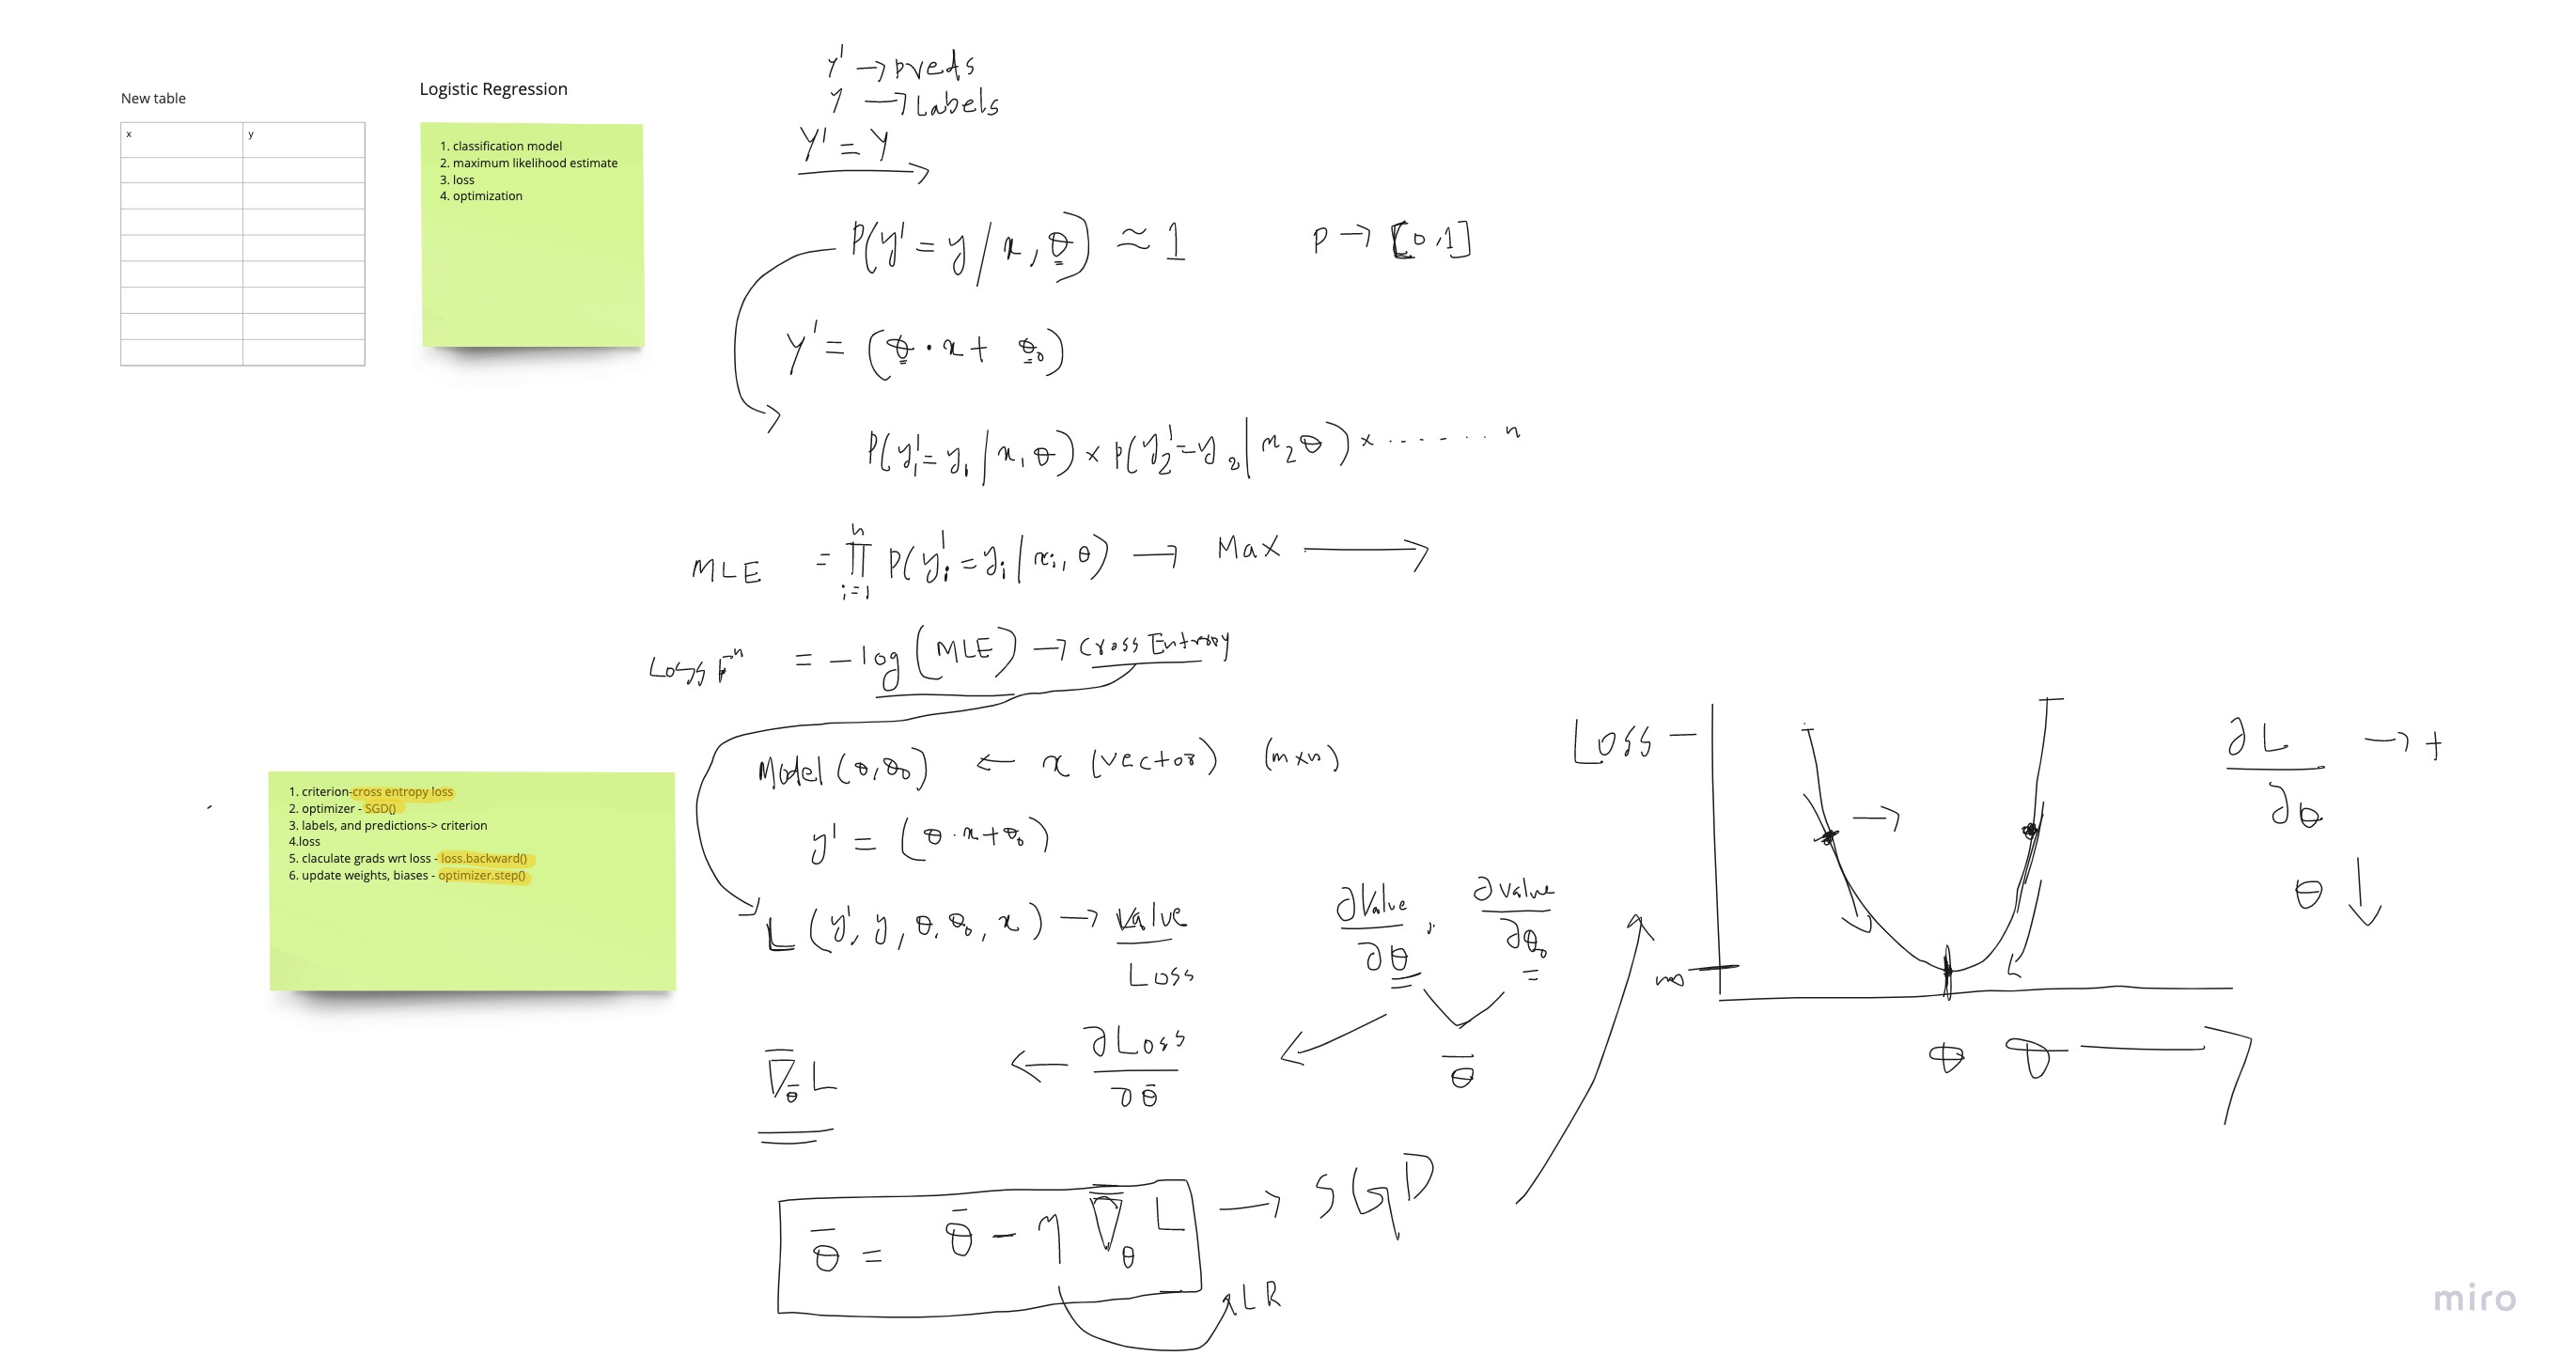 New table
x y
Logistic Regression
1. classification model
2. maximum likelihood estimate
3. loss
4. optimization
y' → preds
y → Labels
Y' = Y
P(y' = y / x, θ) ≈ 1
P → [0,1]
Y' = (θ · x + θ₀)
P(y₁' = y₁ | x₁ θ) × P(y₂' = y₂ | x₂ θ) × ....... n
MLE = ∏ᵢ₌₁ⁿ P(yᵢ' = yᵢ / xᵢ, θ) → Max →
Loss Fⁿ = -log (MLE) → Cross Entropy
Model (θ, θ₀) ← x (vector) (m×n)
y' = (θ · x + θ₀)
L (y', y, θ, θ₀, x) → Value
Loss
∂Value/∂θ , ∂Value/∂θ₀
θ̄
∇̄_θ̄ L ← ∂Loss/∂θ̄
θ̄ = θ̄ - η ∇̄_θ L → SGD
LR
1. criterion-cross entropy loss
2. optimizer - SGD()
3. labels, and predictions-> criterion
4.loss
5. claculate grads wrt loss - loss.backward()
6. update weights, biases - optimizer.step()
Loss –
θ θ →
∂L/∂θ → +
θ ↓
miro